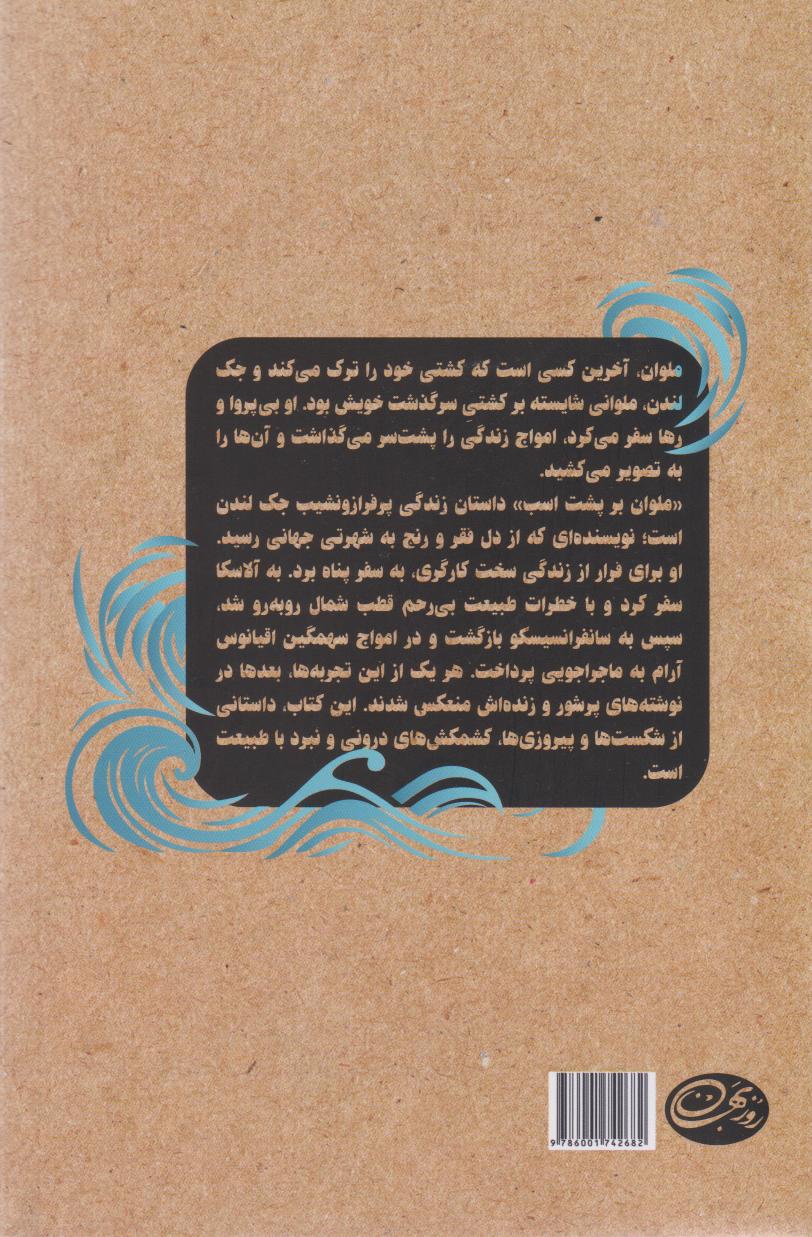 ملوان، آخرین کسی است که کشتی خود را ترک می‌کند و جک
لندن، ملوانی شایسته بر کشتیِ سرگذشت خویش بود. او بی‌پروا و
رها سفر می‌کرد، امواج زندگی را پشت‌سر می‌گذاشت و آن‌ها را
به تصویر می‌کشید.
«ملوان بر پشت اسب» داستان زندگی پرفرازونشیب جک لندن
است؛ نویسنده‌ای که از دل فقر و رنج به شهرتی جهانی رسید.
او برای فرار از زندگی سخت کارگری، به سفر پناه برد. به آلاسکا
سفر کرد و با خطرات طبیعت بی‌رحم قطب شمال روبه‌رو شد،
سپس به سانفرانسیسکو بازگشت و در امواج سهمگین اقیانوس
آرام به ماجراجویی پرداخت. هر یک از این تجربه‌ها، بعدها در
نوشته‌های پرشور و زنده‌اش منعکس شدند. این کتاب، داستانی
از شکست‌ها و پیروزی‌ها، کشمکش‌های درونی و نبرد با طبیعت
است.
روزبهان
9 786001 742682